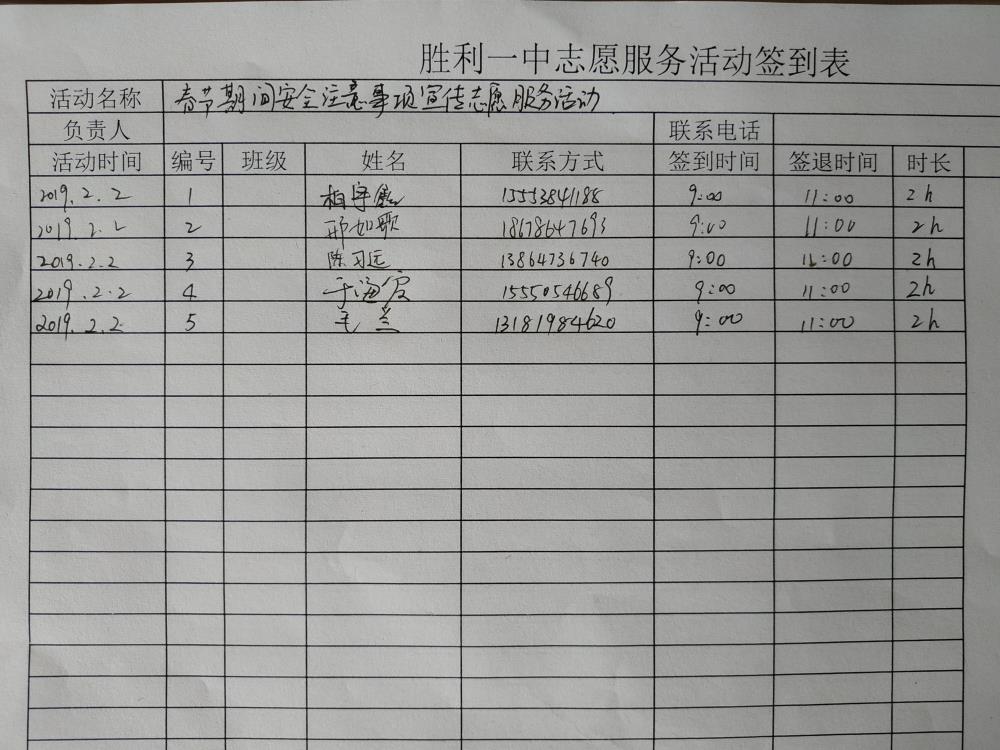 胜利一中志愿服务活动签到表
活动名称 春节期间安全注意事项宣传志愿服务活动
负责人 联系电话
活动时间 编号 班级 姓名 联系方式 签到时间 签退时间 时长
2019.2.2 1 15553841188 9:00 11:00 2h
2019.2.2 2 邢如歌 18678647693 9:00 11:00 2h
2019.2.2 3 陈习远 13864736740 9:00 11:00 2h
2019.2.2 4 于海 15550546689 9:00 11:00 2h
2019.2.2 5 毛兰 13181984620 9:00 11:00 2h